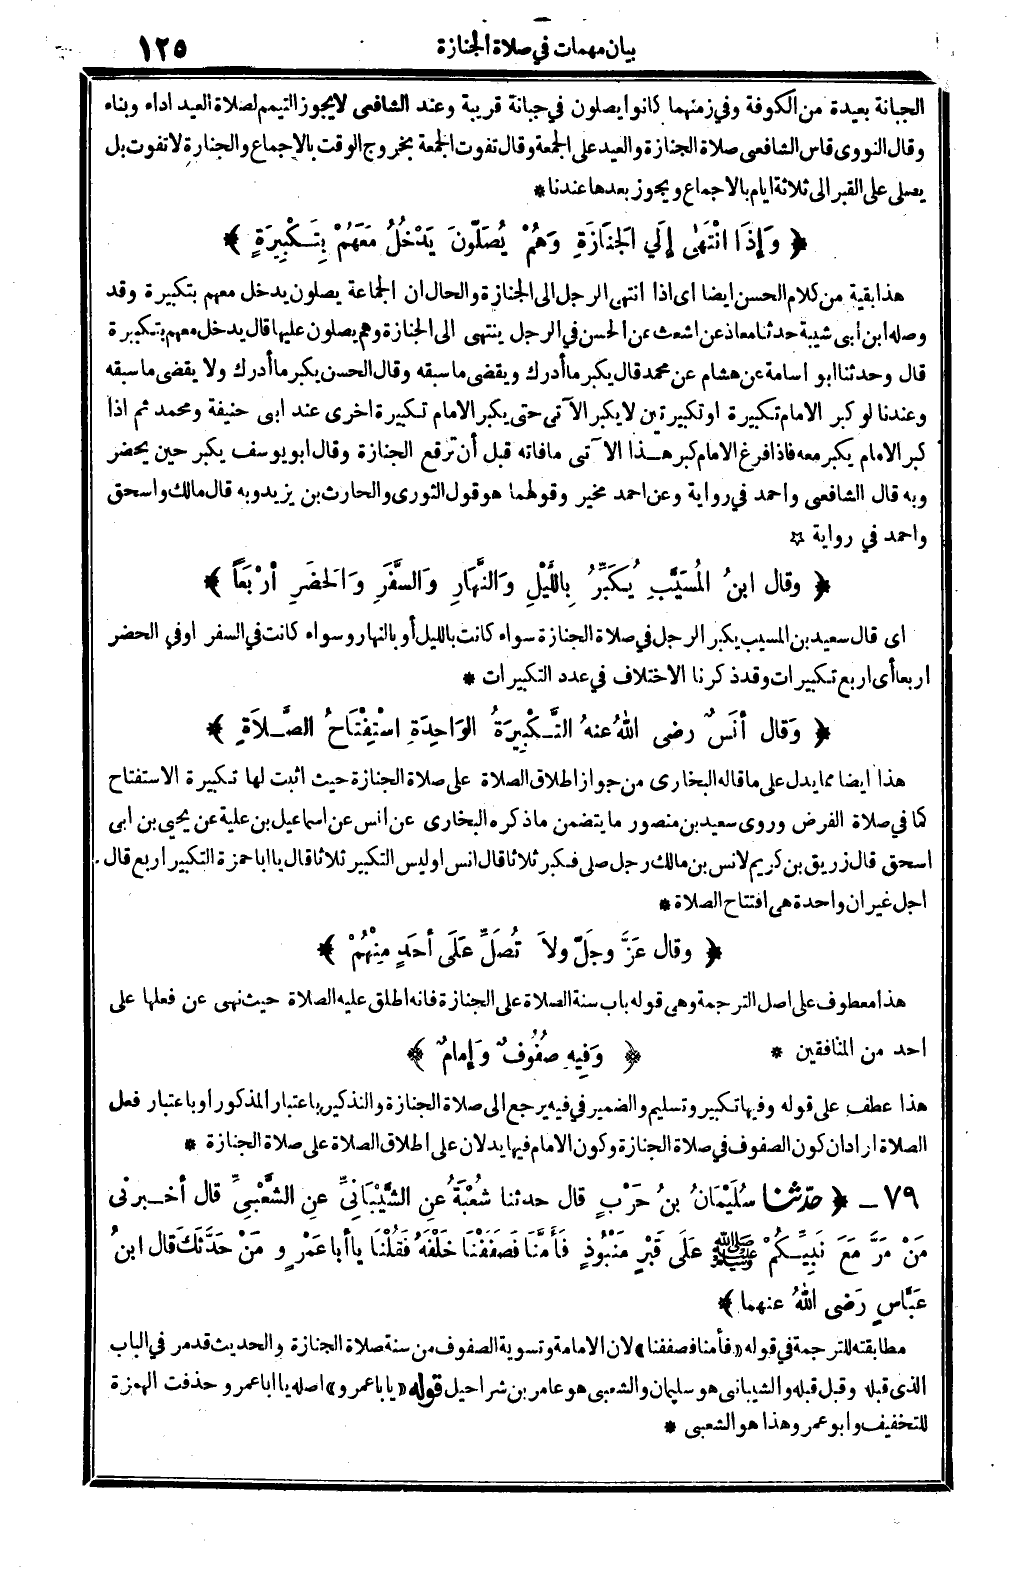 بيان مهمات في صلاة الجنازة ١٢٥
الجبانة بعيدة من الكوفة وفي زمنهما كانوا يصلون في جبانة قريبة وعند الشافعى لايجوز التيمم لصلاة العيد اداء وبناء
وقال النووى قاس الشافعى صلاة الجنازة والعيد على الجمعة وقال تفوت الجمعة بخروج الوقت بالاجماع والجنازة لاتفوت بل
يصلى على القبر الى ثلاثة ايام بالاجماع ويجوز بعدها عندنا *
﴿ وَإِذَا انْتَهٰى إِلَي الجَنَازَةِ وَهُمْ يُصَلّونَ يَدْخُلُ مَعَهُمْ بِتَكْبِيرَةٍ ﴾
هذا بقية من كلام الحسن ايضا اى اذا انتهى الرجل الى الجنازة والحال ان الجماعة يصلون يدخل معهم بتكبيرة وقد
وصله ابن ابى شيبة حدثنا معاذ عن اشعث عن الحسن في الرجل ينتهى الى الجنازة وهم يصلون عليها قال يدخل معهم بتكبيرة
قال وحدثنا ابو اسامة عن هشام عن محمد قال يكبر ما أدرك ويقضى ما سبقه وقال الحسن يكبر ما أدرك ولا يقضى ما سبقه
وعندنا لو كبر الامام تكبيرة او تكبيرتين لايكبر الآتى حتى يكبر الامام تكبيرة اخرى عند ابى حنيفة ومحمد ثم اذا
كبر الامام يكبر معه فاذا فرغ الامام كبر هــذا الآتى مافاته قبل أن ترفع الجنازة وقال ابو يوسف يكبر حين يحضر
وبه قال الشافعى واحمد في رواية وعن احمد مخير وقولهما هو قول الثورى والحارث بن يزيد وبه قال مالك واسحق
واحمد في رواية ☆
﴿ وقال ابنُ المُسَيَّبِ يُكَبِّرُ بِاللَّيْلِ وَالنَّهَارِ وَالسَّفَرِ وَالحَضَرِ أرْبَعَاً ﴾
اى قال سعيد بن المسيب يكبر الرجل في صلاة الجنازة سواء كانت بالليل أو بالنهار وسواء كانت في السفر او في الحضر
اربعا أى اربع تكبيرات وقد ذكرنا الاختلاف في عدد التكبيرات *
﴿ وَقال أنَسٌ رضى اللهُ عنهُ التَّـكْبِيرَةُ الوَاحِدَةِ اسْتِفْتَاحُ الصَّـلاَةِ ﴾
هذا ايضا مما يدل على ماقاله البخارى من جواز اطلاق الصلاة على صلاة الجنازة حيث اثبت لها تكبيرة الاستفتاح
كما في صلاة الفرض وروى سعيد بن منصور ما يتضمن ماذكره البخارى عن انس عن اسماعيل بن علية عن يحيى بن ابى
اسحق قال زريق بن كريم لانس بن مالك رجل صلى فكبر ثلاثا قال انس اوليس التكبير ثلاثا قال يا ابا حمزة التكبير اربع قال
اجل غير ان واحدة هى افتتاح الصلاة *
﴿ وقال عَزَّ وجَلّ ولاَ تُصَلِّ عَلَى أحَدٍ مِنْهُمْ ﴾
هذا معطوف على اصل الترجمة وهى قوله باب سنة الصلاة على الجنازة فانه اطلق عليه الصلاة حيث نهى عن فعلها على
احد من المنافقين * ﴿ وَفِيهِ صُفُوفٌ وَإمامٌ ﴾
هذا عطف على قوله وفيها تكبير وتسليم والضمير في فيه يرجع الى صلاة الجنازة والتذكير باعتبار المذكور او باعتبار فعل
الصلاة اراد ان كون الصفوف في صلاة الجنازة وكون الامام فيها يدلان على اطلاق الصلاة على صلاة الجنازة *
٧٩ ـ ﴿ حدّثنا سُلَيْمَانُ بنُ حَرْبٍ قال حدثنا شُعْبَةُ عنِ الشَّيْبَانِيِّ عنِ الشَّعْبِيِّ قال أخـبرنى
مَنْ مَرَّ مَعَ نَبِيِّـكُمْ ﷺ عَلَى قَبْرٍ مَنْبُوذٍ فَأَمَّنَا فَصَفَفْنَا خَلْفَهُ فَقُلْنَا يا أباعَمْرٍ و مَنْ حَدَّثَكَ قال ابنُ
عَبَّاسٍ رَضى اللهُ عنهما ﴾
مطابقته للترجمة في قوله «فأمنا فصففنا» لان الامامة وتسوية الصفوف من سنة صلاة الجنازة والحديث قد مر في الباب
الذى قبله وقبل قبله والشيبانى هو سليمان والشعبى هو عامر بن شراحيل قوله «يابا عمرو» اصله يا ابا عمرو حذفت الهمزة
للتخفيف وابو عمرو هذا هو الشعبى *